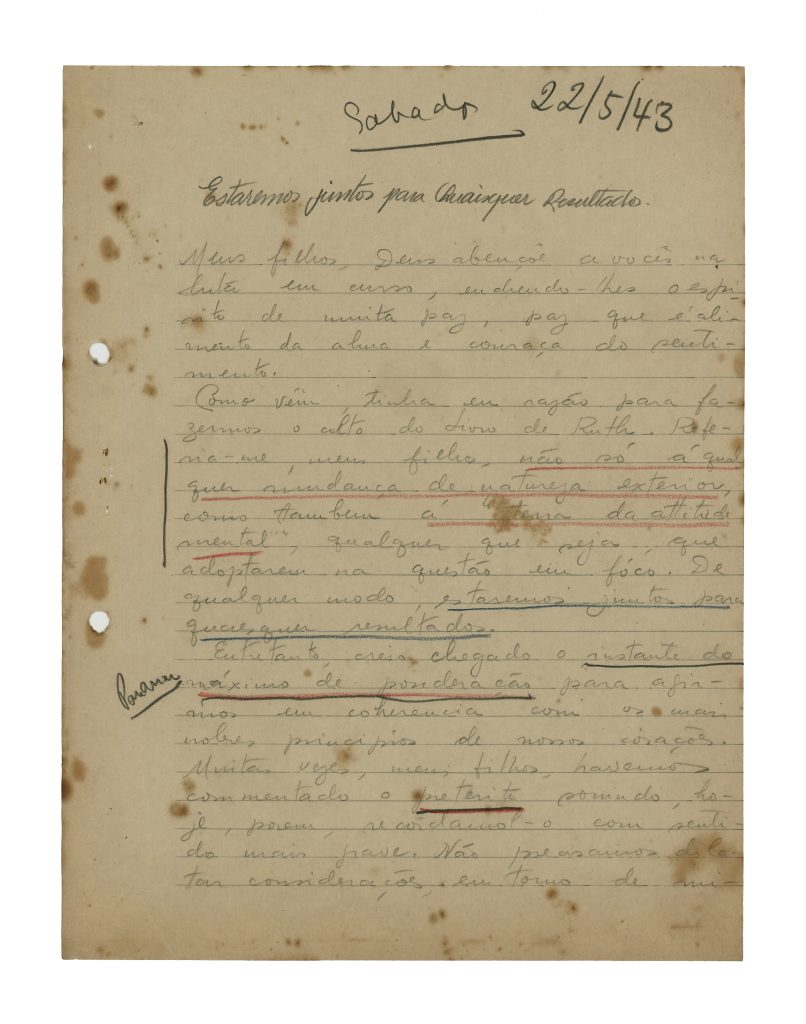 Sabado 22/5/43
Estaremos juntos para Quaisquer Resultados.
Meus filhos, Deus abençôe a vocês na
luta em curso, enchendo-lhes o espi-
rito de muita paz, paz que é ali-
mento da alma e couraça do senti-
mento.
Como vêm, tinha eu razão para fa-
zermos o culto do Livro de Ruth. Refe-
ria-me, meus filhos, não só á qual
quer mudança de natureza exterior,
como tambem á "terra da attitude
mental", qualquer que seja, que
adoptarem na questão em fóco. De
qualquer modo, estaremos juntos para
quaesquer resultados.
Entretanto, creio chegado o instante do
máximo de ponderação para agir-
mos em coherencia com os mais
nobres principios de nossos corações.
Muitas vezes, meus filhos, havemos
commentado o preterito sorrindo, ho-
je, porem, recordamol-o com senti-
do mais grave. Não precisamos dila-
tar considerações em torno de mi-